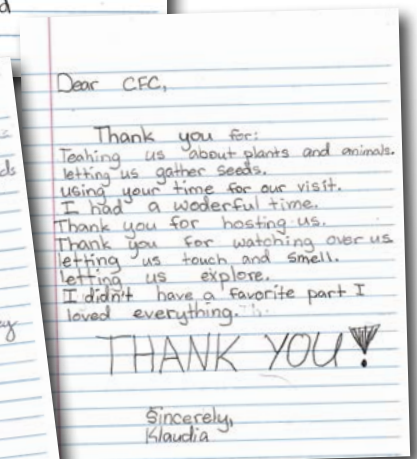 d
ds
ey
Dear CFC,
Thank you for:
Teahing us about plants and animals.
letting us gather seeds.
using your time for our visit.
I had a woderful time.
Thank you for hosting us.
Thank you for watching over us
letting us touch and smell.
letting us explore.
I didn't have a favorite part I
loved everything.
THANK YOU!
Sincerely,
Klaudia